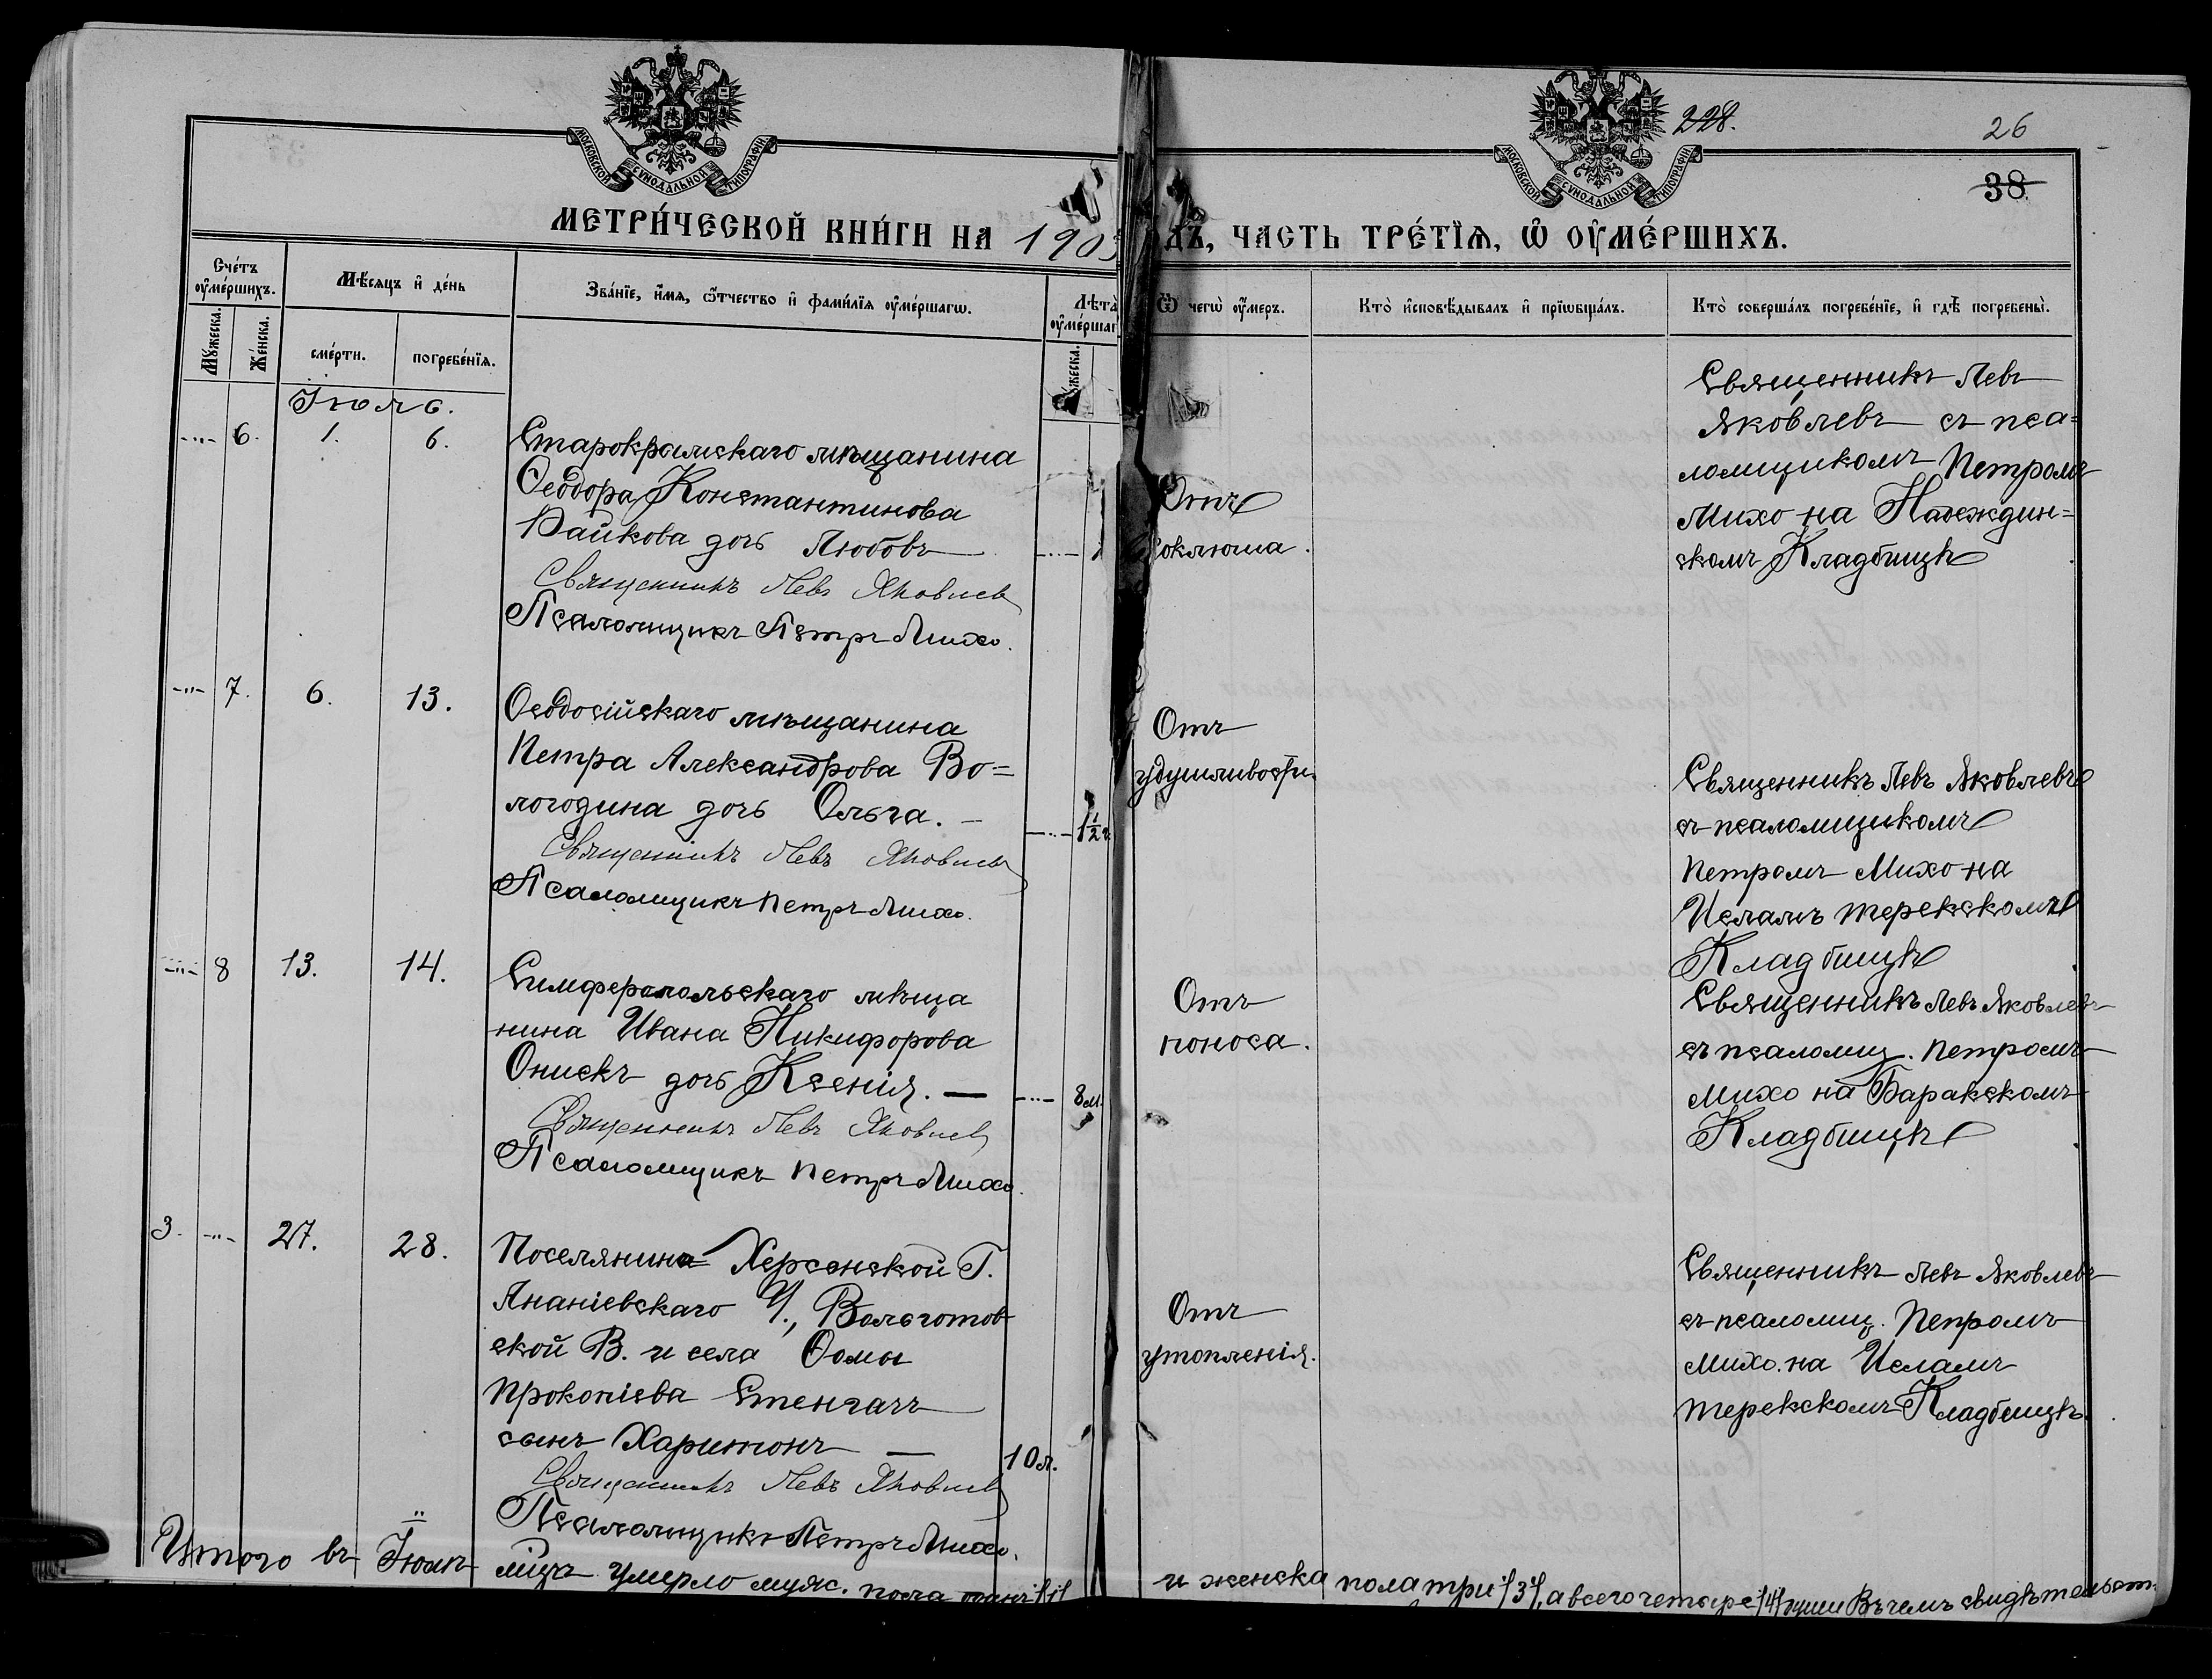 МОСКОВСКОЙ СѴНОДАЛЬНОЙ ТИПОГРАФІИ
МОСКОВСКОЙ СѴНОДАЛЬНОЙ ТИПОГРАФІИ
228.
26
38.
МЕТРИ́ЧЕСКОЙ КНИ́ГИ НА 1903
ДЪ, ЧАСТЬ ТРЕ́ТЇѦ, Ѿ ОУ҆МЕ́РШИХЪ.
Сче́тъ оу҆ме́ршихъ.
Мꙋжеска.
Же́нска.
Мѣ́сяцъ и҆ де́нь
сме́рти.
погребе́нїѧ.
Зва́нїе, и҆́мѧ, ѻ҆́тчество и҆ фами́лїѧ оу҆ме́ршагѡ.
Лѣта̀ оу҆ме́ршаг
жеска.
Ѿ чегѡ̀ оу҆́меръ.
Кто̀ и҆сповѣ́дывалъ и҆ прїѡбща́лъ.
Кто̀ соверша́лъ погребе́нїе, и҆ гдѣ̀ погребены̀.
Іюль.
-"- 6. 1. 6.
Старокрымскаго мѣщанина
Ѳеодора Константинова
Райкова дочь Любовь
Священникъ Левъ Яковлев
Псаломщикъ Петръ Михо.
-"- 1
Отъ
коклюша.
Священникъ Левъ
Яковлевъ съ пса=
ломщикомъ Петромъ
Михо на Надеждин=
скомъ Кладбищѣ
-"- 7. 6. 13.
Ѳеодосійскаго мѣщанина
Петра Александрова Во=
логодина дочь Ольга.
Священникъ Левъ Яковлев
Псаломщикъ Петръ Михо.
-"- 1½ г.
Отъ
удушливости.
Священникъ Левъ Яковлевъ
съ псаломщикомъ
Петромъ Михо на
Исламъ терекскомъ
Кладбищѣ
-"- 8 13. 14.
Симферопольскаго мѣща
нина Ивана Никифорова
Онискъ дочь Ксенія.
Священникъ Левъ Яковлев
Псаломщикъ Петръ Михо.
-"- 8 м.
Отъ
поноса.
Священникъ Левъ Яковлевъ
съ псаломщ. Петромъ
Михо на Баракскомъ
Кладбищѣ
3. -"- 27. 28.
Поселянина Херсонской Г.
Ананіевскаго У., Вольготов
ской В. и села Ѳомы
Прокопіева Стенгачъ
сынъ Харитонъ
Священникъ Левъ Яковлев
Псаломщикъ Петръ Михо.
10 л.
Отъ
утопленія.
Священникъ Левъ Яковлевъ
съ псаломщ. Петромъ
Михо. на Исламъ
терекскомъ Кладбищѣ.
Итого въ Іюлѣ мцѣ умерло муж. пола одинъ /1/
и женска пола три /3/, а всего четыре /4/ души Въ чемъ свидѣтельст.